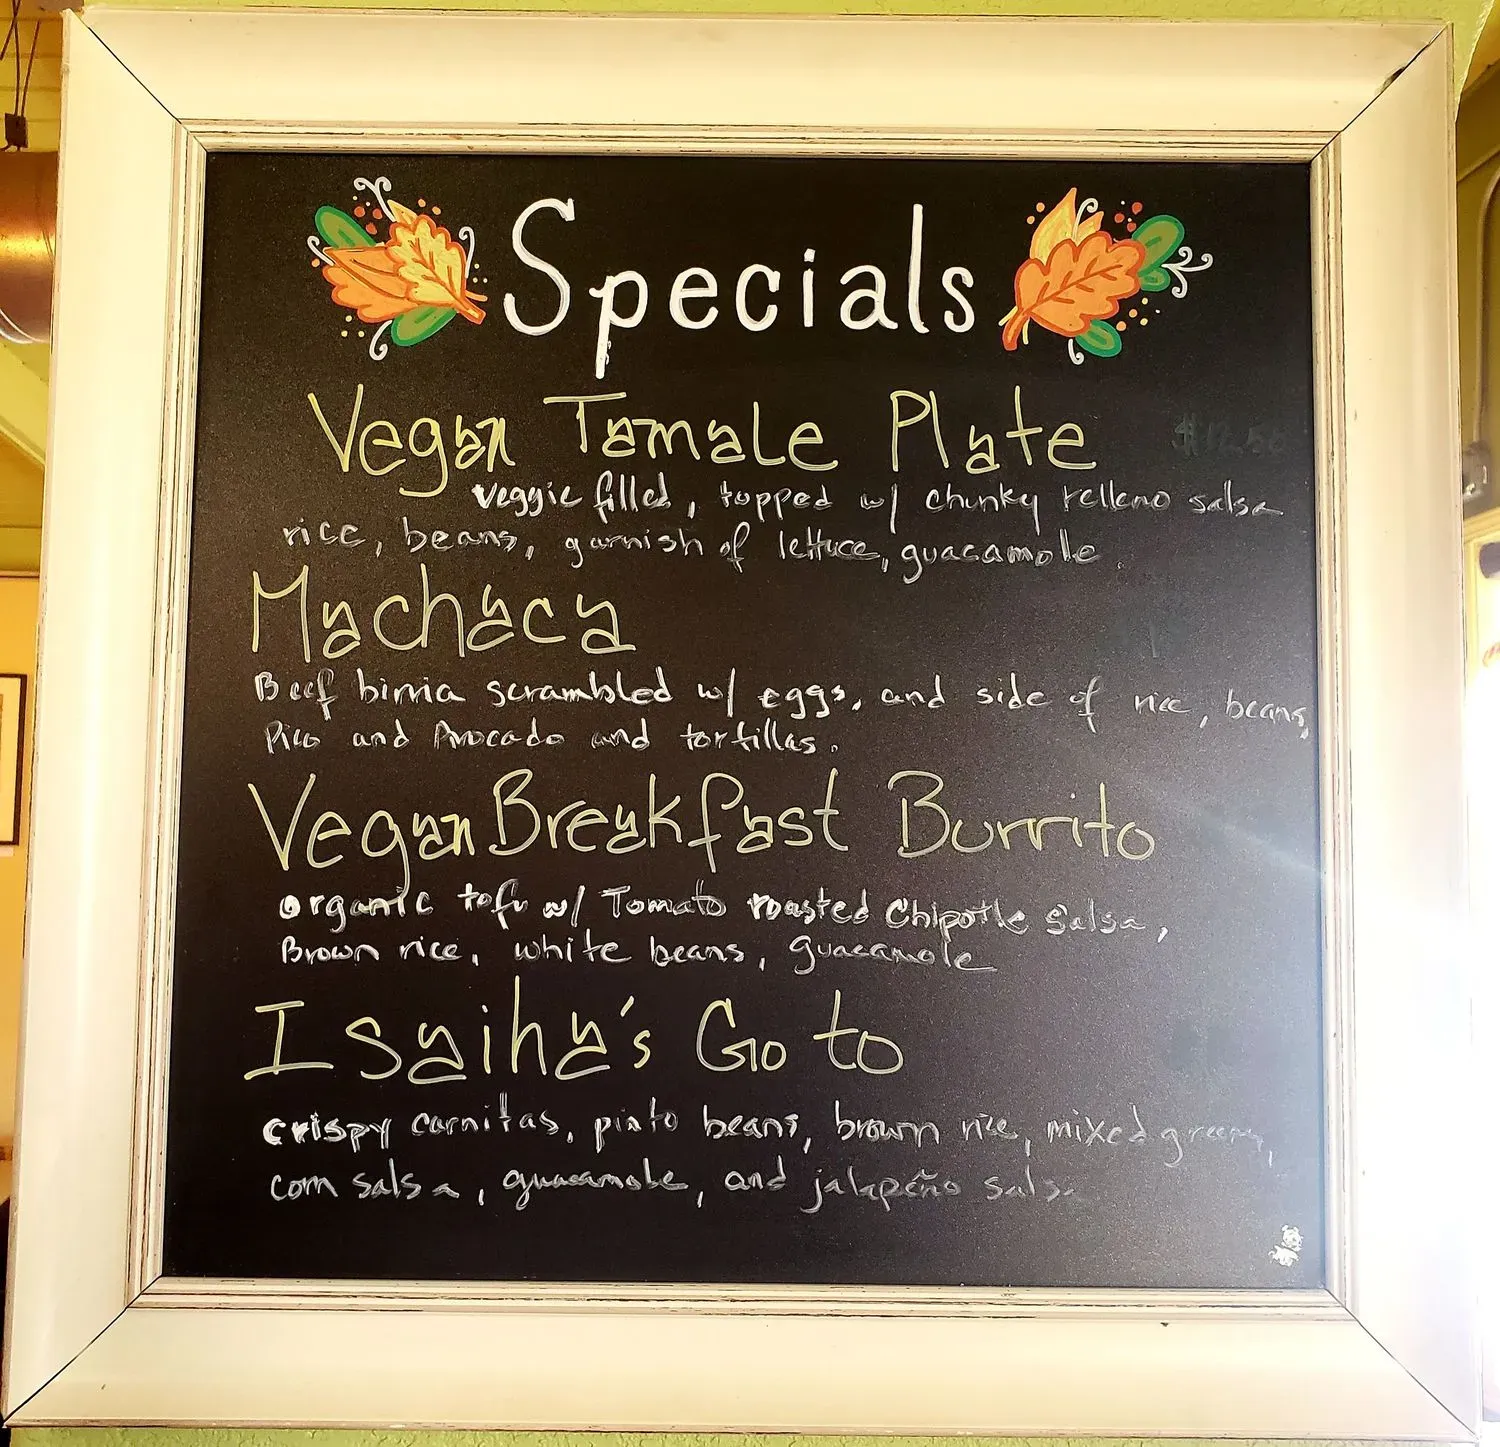 Specials
Vegan Tamale Plate
veggie filled, topped w/ chunky relleno salsa
rice, beans, garnish of lettuce, guacamole
Machaca
Beef birria scrambled w/ eggs, and side of rice, beans,
Pico and Avocado and tortillas.
Vegan Breakfast Burrito
organic tofu w/ Tomato roasted Chipotle Salsa,
Brown rice, white beans, guacamole
Isaiha's Go to
crispy carnitas, pinto beans, brown rice, mixed greens,
corn salsa, guacamole, and jalapeño salsa